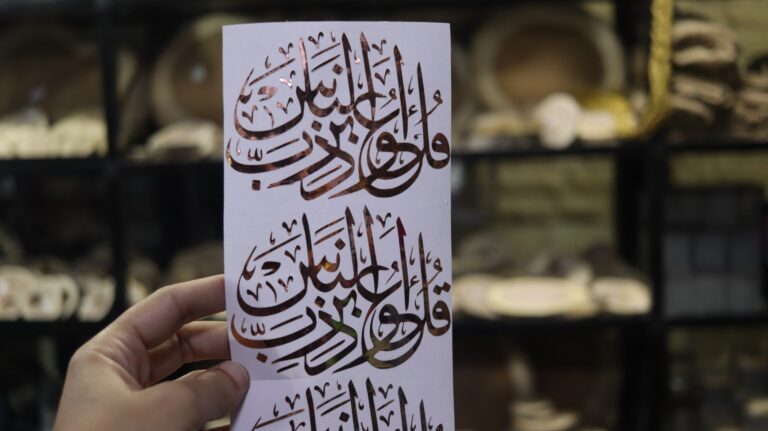 قُلْ أَعُوذُ بِرَبِّ النَّاسِ
قُلْ أَعُوذُ بِرَبِّ النَّاسِ